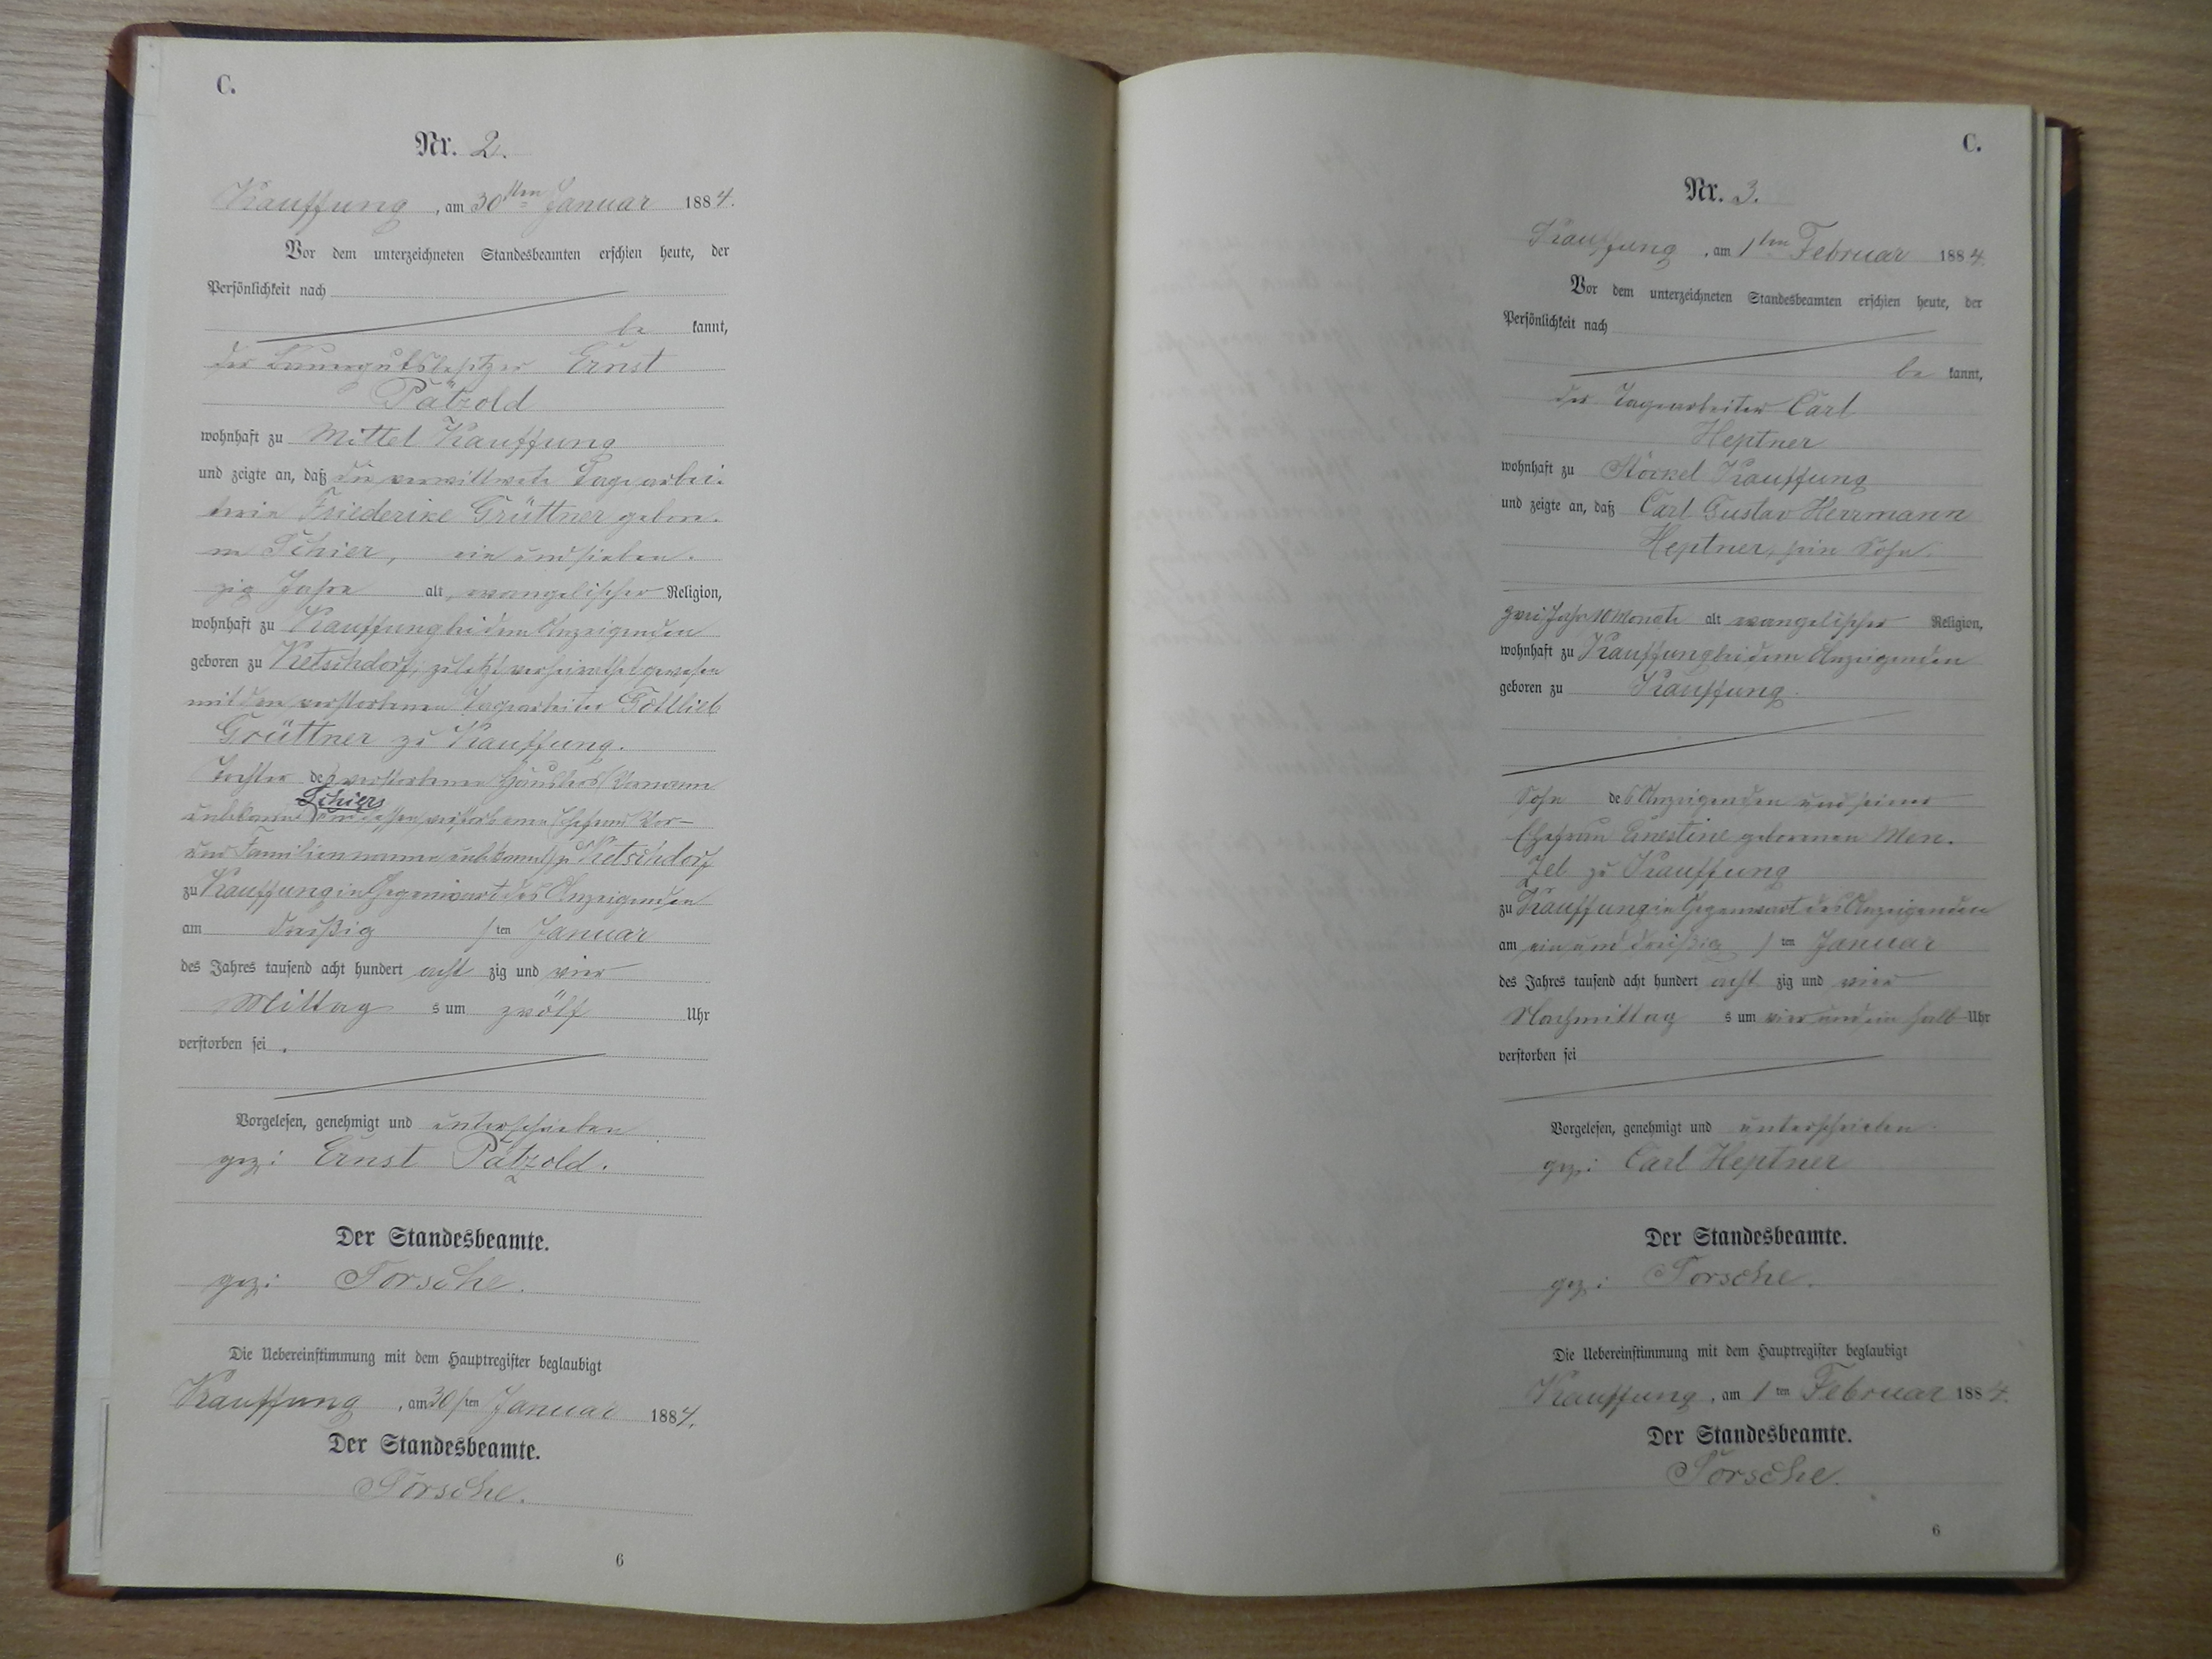 C.
Nr. 2.
Kauffung, am 30ten Januar 1884.
Vor dem unterzeichneten Standesbeamten erschien heute, der
Persönlichkeit nach
be kannt,
der Bauergutsbesitzer Ernst
Pätzold
wohnhaft zu Mittel Kauffung
und zeigte an, daß die verwittwete Tagearbei-
terin Friederike Grüttner gebore-
ne Schier, ein und sieben-
zig Jahre alt, evangelischer Religion,
wohnhaft zu Kauffung bei dem Anzeigenden
geboren zu Ketschdorf, zuletzt verheirathet gewesen
mit dem verstorbenen Tagearbeiter Gottlieb
Grüttner zu Kauffung.
Tochter des verstorbenen Häuslers (Vorname
Schiers
unbekannt) und dessen verstorbenen Ehefrau (Vor-
und Familienname unbekannt) zu Ketschdorf
zu Kauffung in Gegenwart des Anzeigenden
am dreißigsten Januar
des Jahres tausend acht hundert acht zig und vier
Mittag s um zwölf Uhr
verstorben sei.
Vorgelesen, genehmigt und unterschrieben
gez: Ernst Pätzold.
Der Standesbeamte.
gez: Torsche.
Die Uebereinstimmung mit dem Hauptregister beglaubigt
Kauffung, am 30sten Januar 1884.
Der Standesbeamte.
Torsche.
6
C.
Nr. 3.
Kauffung, am 1ten Februar 1884.
Vor dem unterzeichneten Standesbeamten erschien heute, der
Persönlichkeit nach
be kannt,
der Tagearbeiter Carl
Heptner
wohnhaft zu Stöckel Kauffung
und zeigte an, daß Carl Gustav Herrmann
Heptner, sein Sohn
zwei Jahr 10 Monate alt evangelischer Religion,
wohnhaft zu Kauffung bei dem Anzeigenden
geboren zu Kauffung.
Sohn des Anzeigenden und seiner
Ehefrau Ernestine geborenen Men-
zel zu Kauffung
zu Kauffung in Gegenwart des Anzeigenden
am ein und dreißigsten Januar
des Jahres tausend acht hundert acht zig und vier
Nachmittag s um vier und ein halb Uhr
verstorben sei
Vorgelesen, genehmigt und unterschrieben
gez: Carl Heptner
Der Standesbeamte.
gez: Torsche.
Die Uebereinstimmung mit dem Hauptregister beglaubigt
Kauffung, am 1ten Februar 1884.
Der Standesbeamte.
Torsche.
6